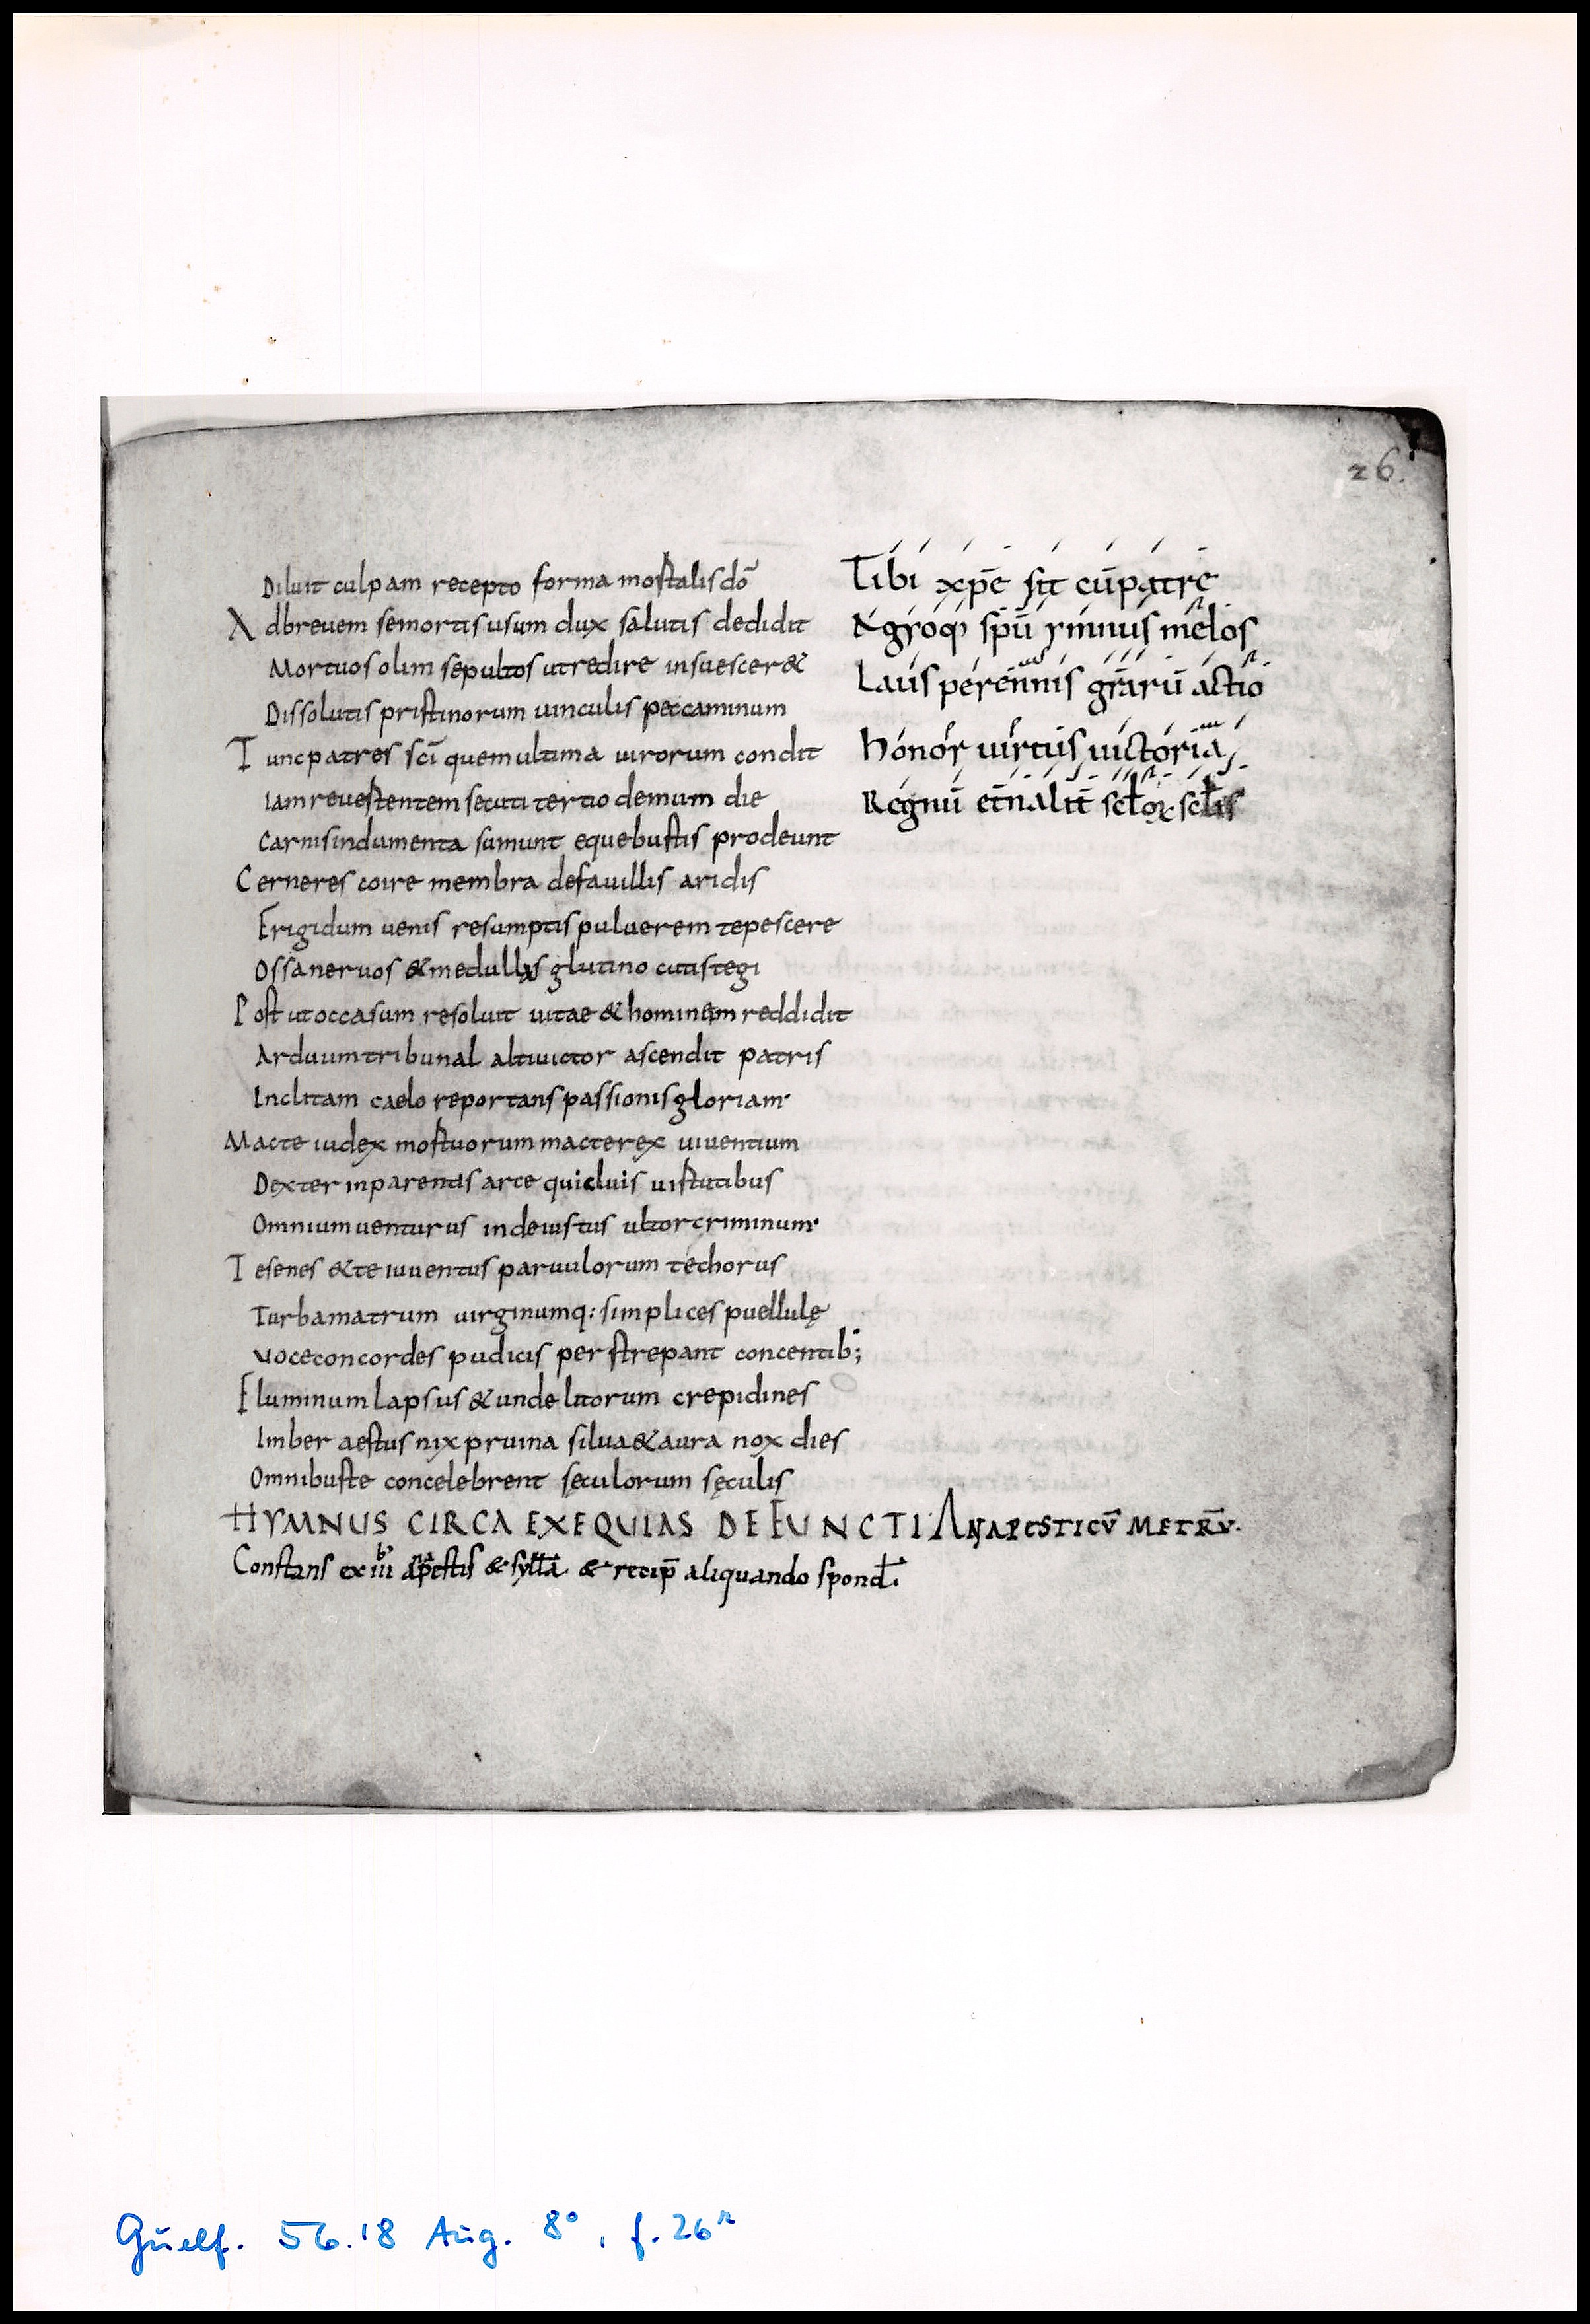 26.
Diluit culpam recepto forma mortalis dō
Ad brevem se mortis usum dux salutis dedidit
Mortuos olim sepultos ut redire insuescer&
Dissolutis pristinorum vinculis peccaminum
Tunc patres sc̄i quem ultima virorum condit
Iam revertentem secuti tertio demum die
Carnis indumenta sumunt eque bustis prodeunt
Cerneres coire membra de favillis aridis
Frigidum venis resumptis pulverem tepescere
Ossa nervos & medullas glutino cutis tegi
Post ut occasum resolvit vitae & hominem reddidit
Arduum tribunal alti victor ascendit patris
Inclitam caelo reportans passionis gloriam·
Macte iudex mortuorum macte rex viventium
Dexter in parentis arce qui cluis virtutibus
Omnium venturus inde iustus ultor criminum·
Te senes & te iuventus parvulorum te chorus
Turba matrum virginumq: simplices puellulę
Voce concordes pudicis perstrepant concentib;
Fluminum lapsus & unde litorum crepidines
Imber aestus nix pruina silva & aura nox dies
Omnibus te concelebrent sęculorum sęculis
Tibi xp̄e sit cū patre
Agioq; sp̄u ymnus melos
Laus perennis gr̄arū actio
Honor virtus victoria
Regnū et̄nalit̄ scl̄oꝝ scl̄is
HYMNUS CIRCA EXEQUIAS DEFUNCTI ANAPESTICV̄ METRV̄.
Constans ex iii apestis & sylla & recip̄ aliquando spond̄.
Guelf. 56.18 Aug. 8°, f. 26r